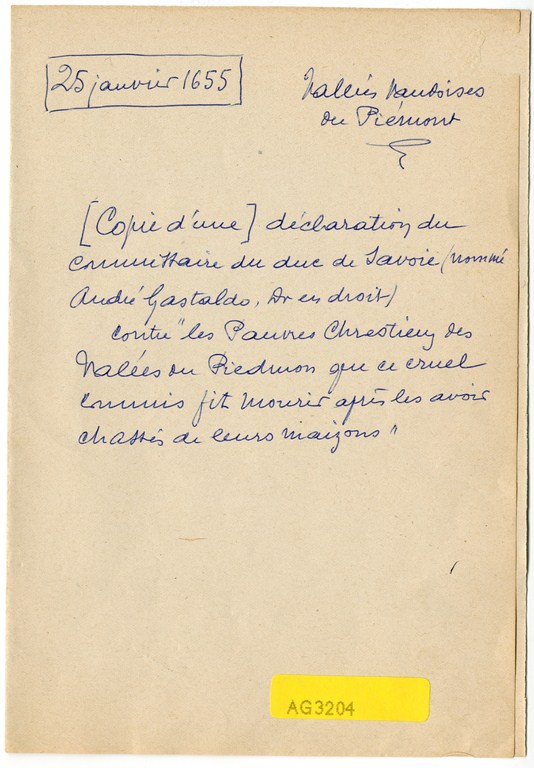 25 janvier 1655
Vallées Vaudoises
du Piémont
[Copie d'une] déclaration du
commissaire du duc de Savoie (nommé
André Gastaldo, Dr en droit)
contre "les Pauvres Chrestiens des
Valées du Piedmon que ce cruel
commis fit mourir après les avoir
chassés de leurs maizons"
AG3204